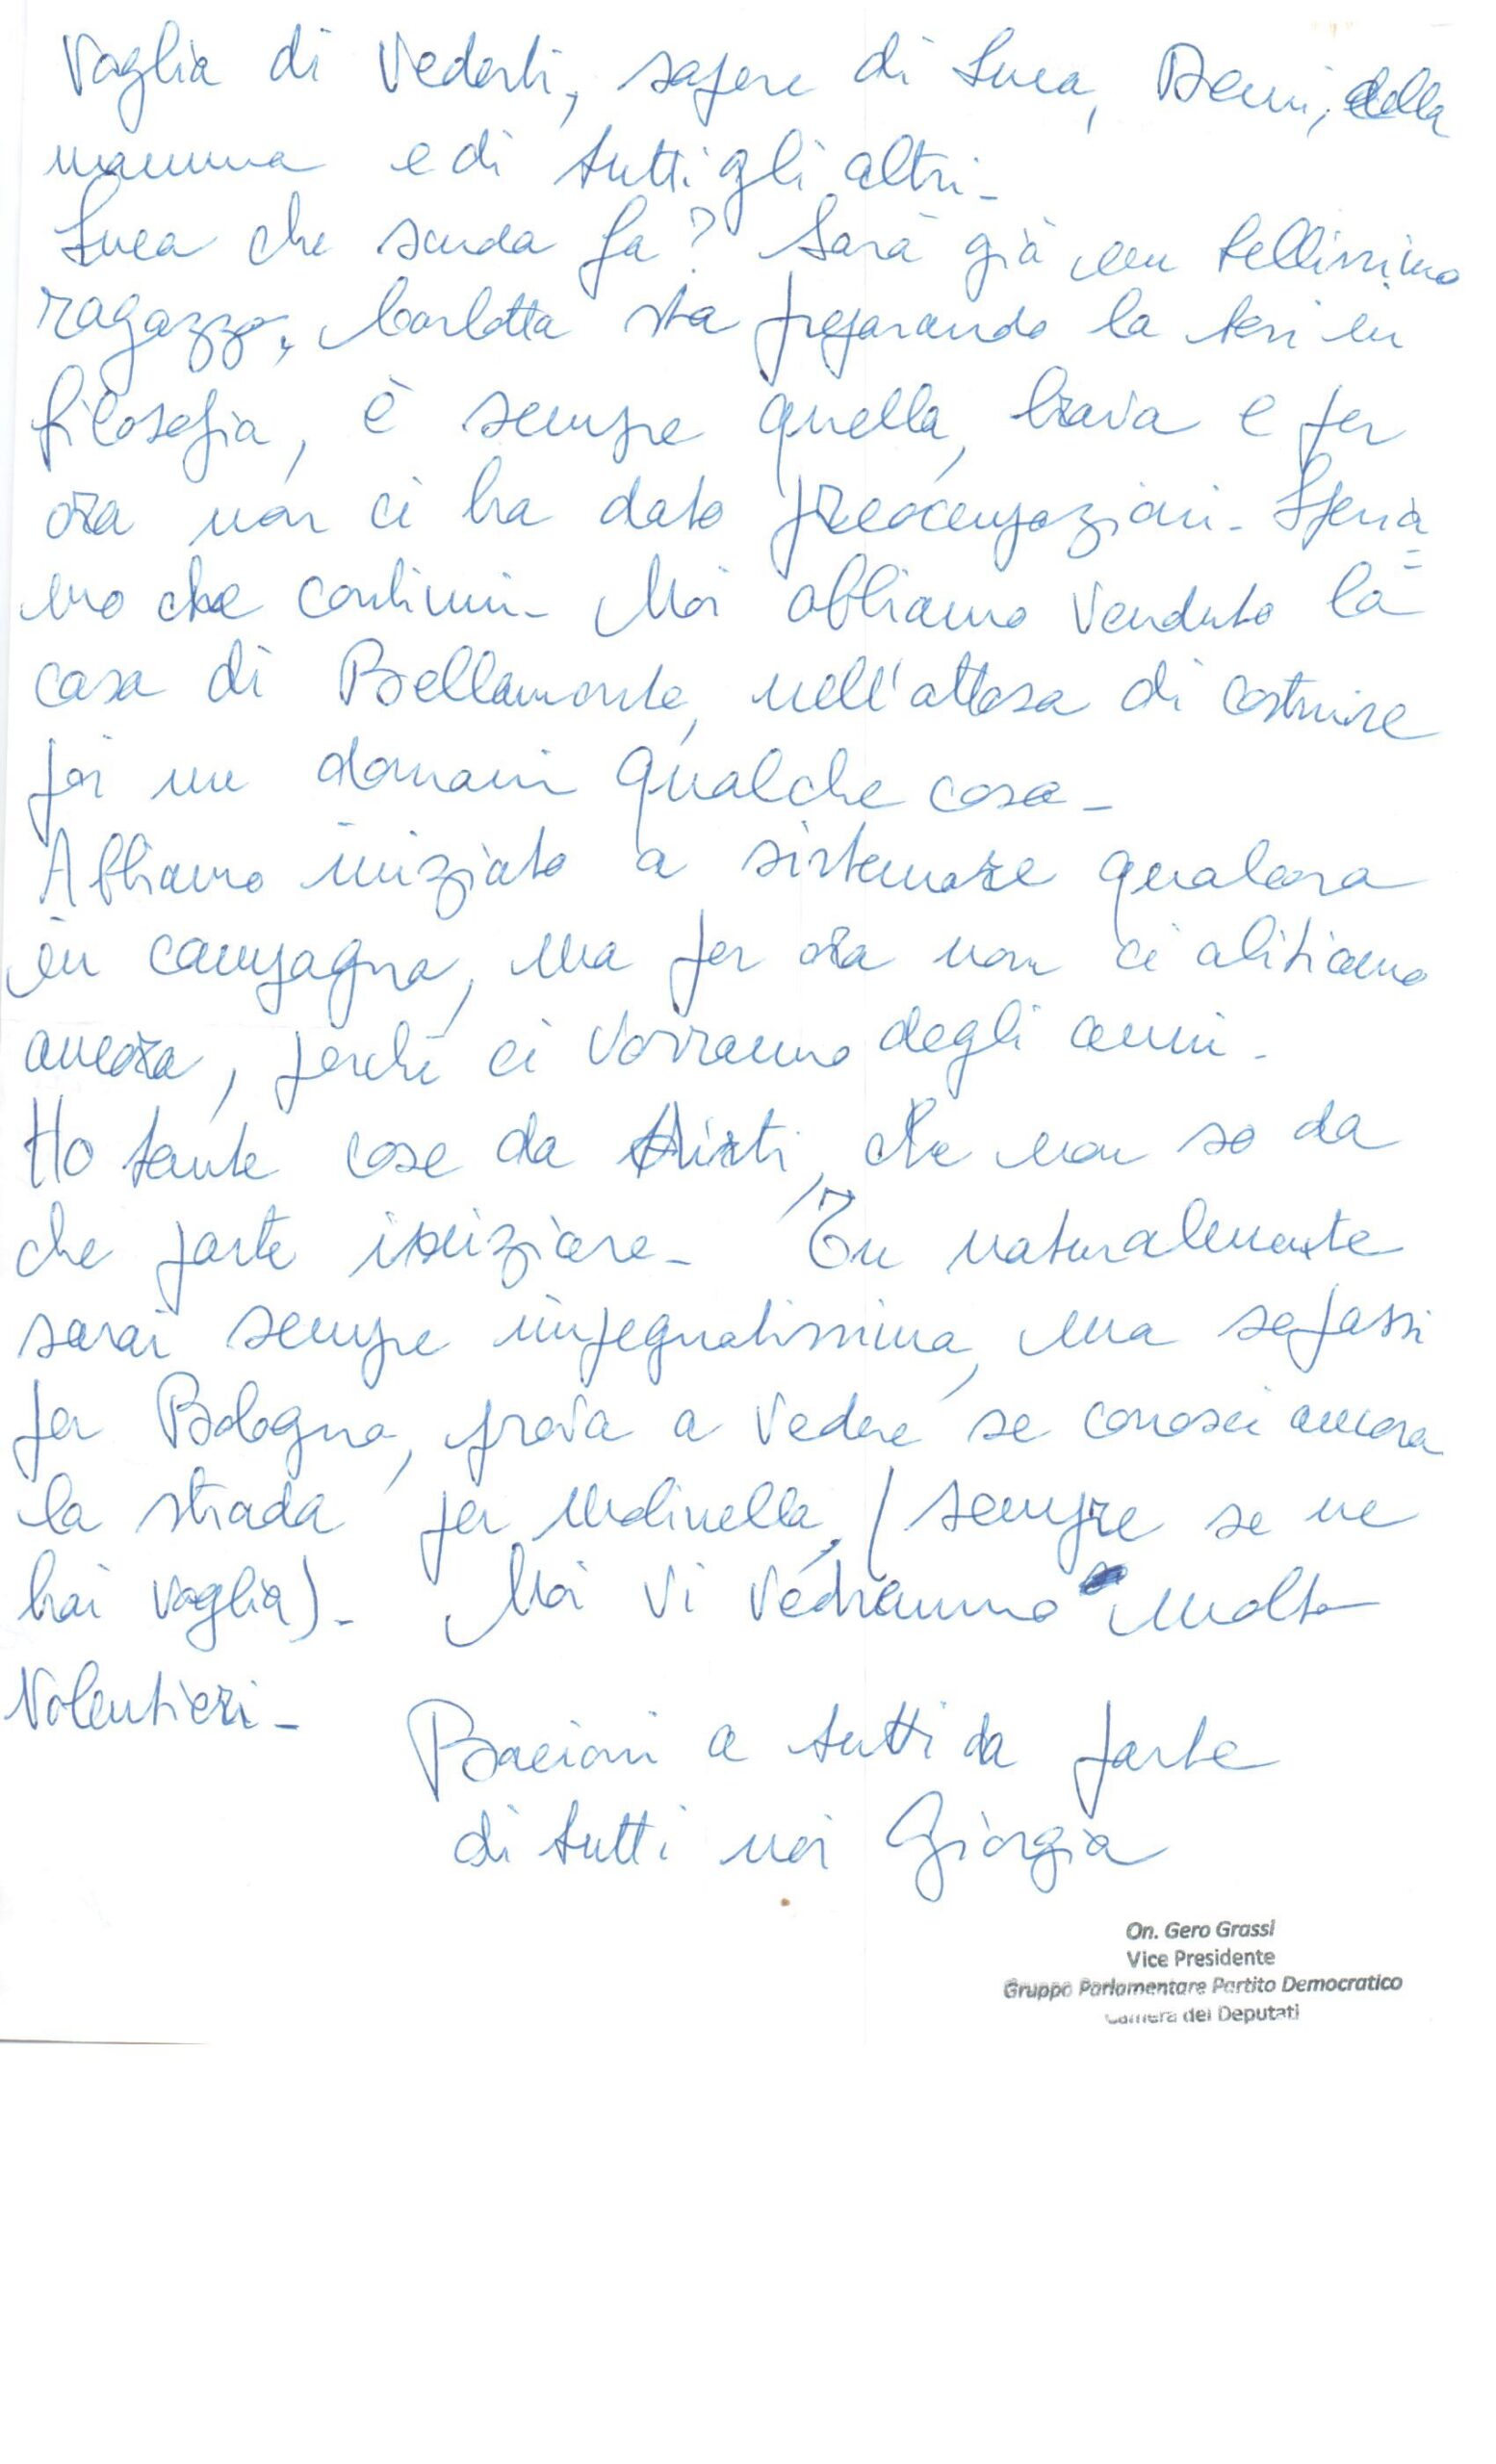 Voglia di Vederti, sapere di Luca, Demi, della
mamma e di tutti gli altri -
Luca che scuola fa? Sarà già un bellissimo
ragazzo, Carlotta sta preparando la tesi in
filosofia, è sempre quella, brava e per
ora non ci ha dato preoccupazioni - Speria=
mo che continui - Noi abbiamo venduto la
casa di Bellamonte, nell'attesa di costruire
poi un domani qualche cosa -
Abbiamo iniziato a sistemare qualcosa
in campagna, ma per ora non ci abitiamo
ancora, perché ci vorranno degli anni -
Ho tante cose da dirti, che non so da
che parte iniziare - Tu naturalmente
sarai sempre impegnatissima, ma se passi
per Bologna, prova a vedere se conosci ancora
la strada per Molinella, (sempre se ne
hai voglia) - Noi vi vedremmo molto
Volentieri -
Bacioni a tutti da parte
di tutti noi Giorgia
On. Gero Grassi
Vice Presidente
Gruppo Parlamentare Partito Democratico
Camera dei Deputati